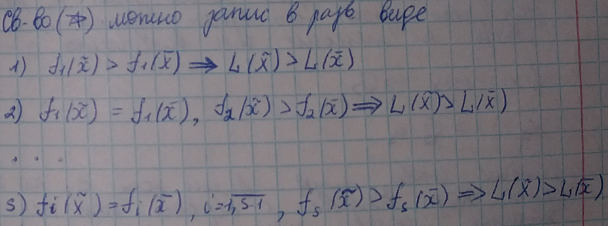 Св-во (*) можно запис в разв виде
1) f₁(x̃) > f₁(x̄) ⇒ L(x̃) > L(x̄)
2) f₁(x̃) = f₁(x̄), f₂(x̃) > f₂(x̄) ⇒ L(x̃) > L(x̄)
. . .
s) fi(x̃) = fi(x̄), i=1,s-1, fs(x̃) > fs(x̄) ⇒ L(x̃) > L(x̄)